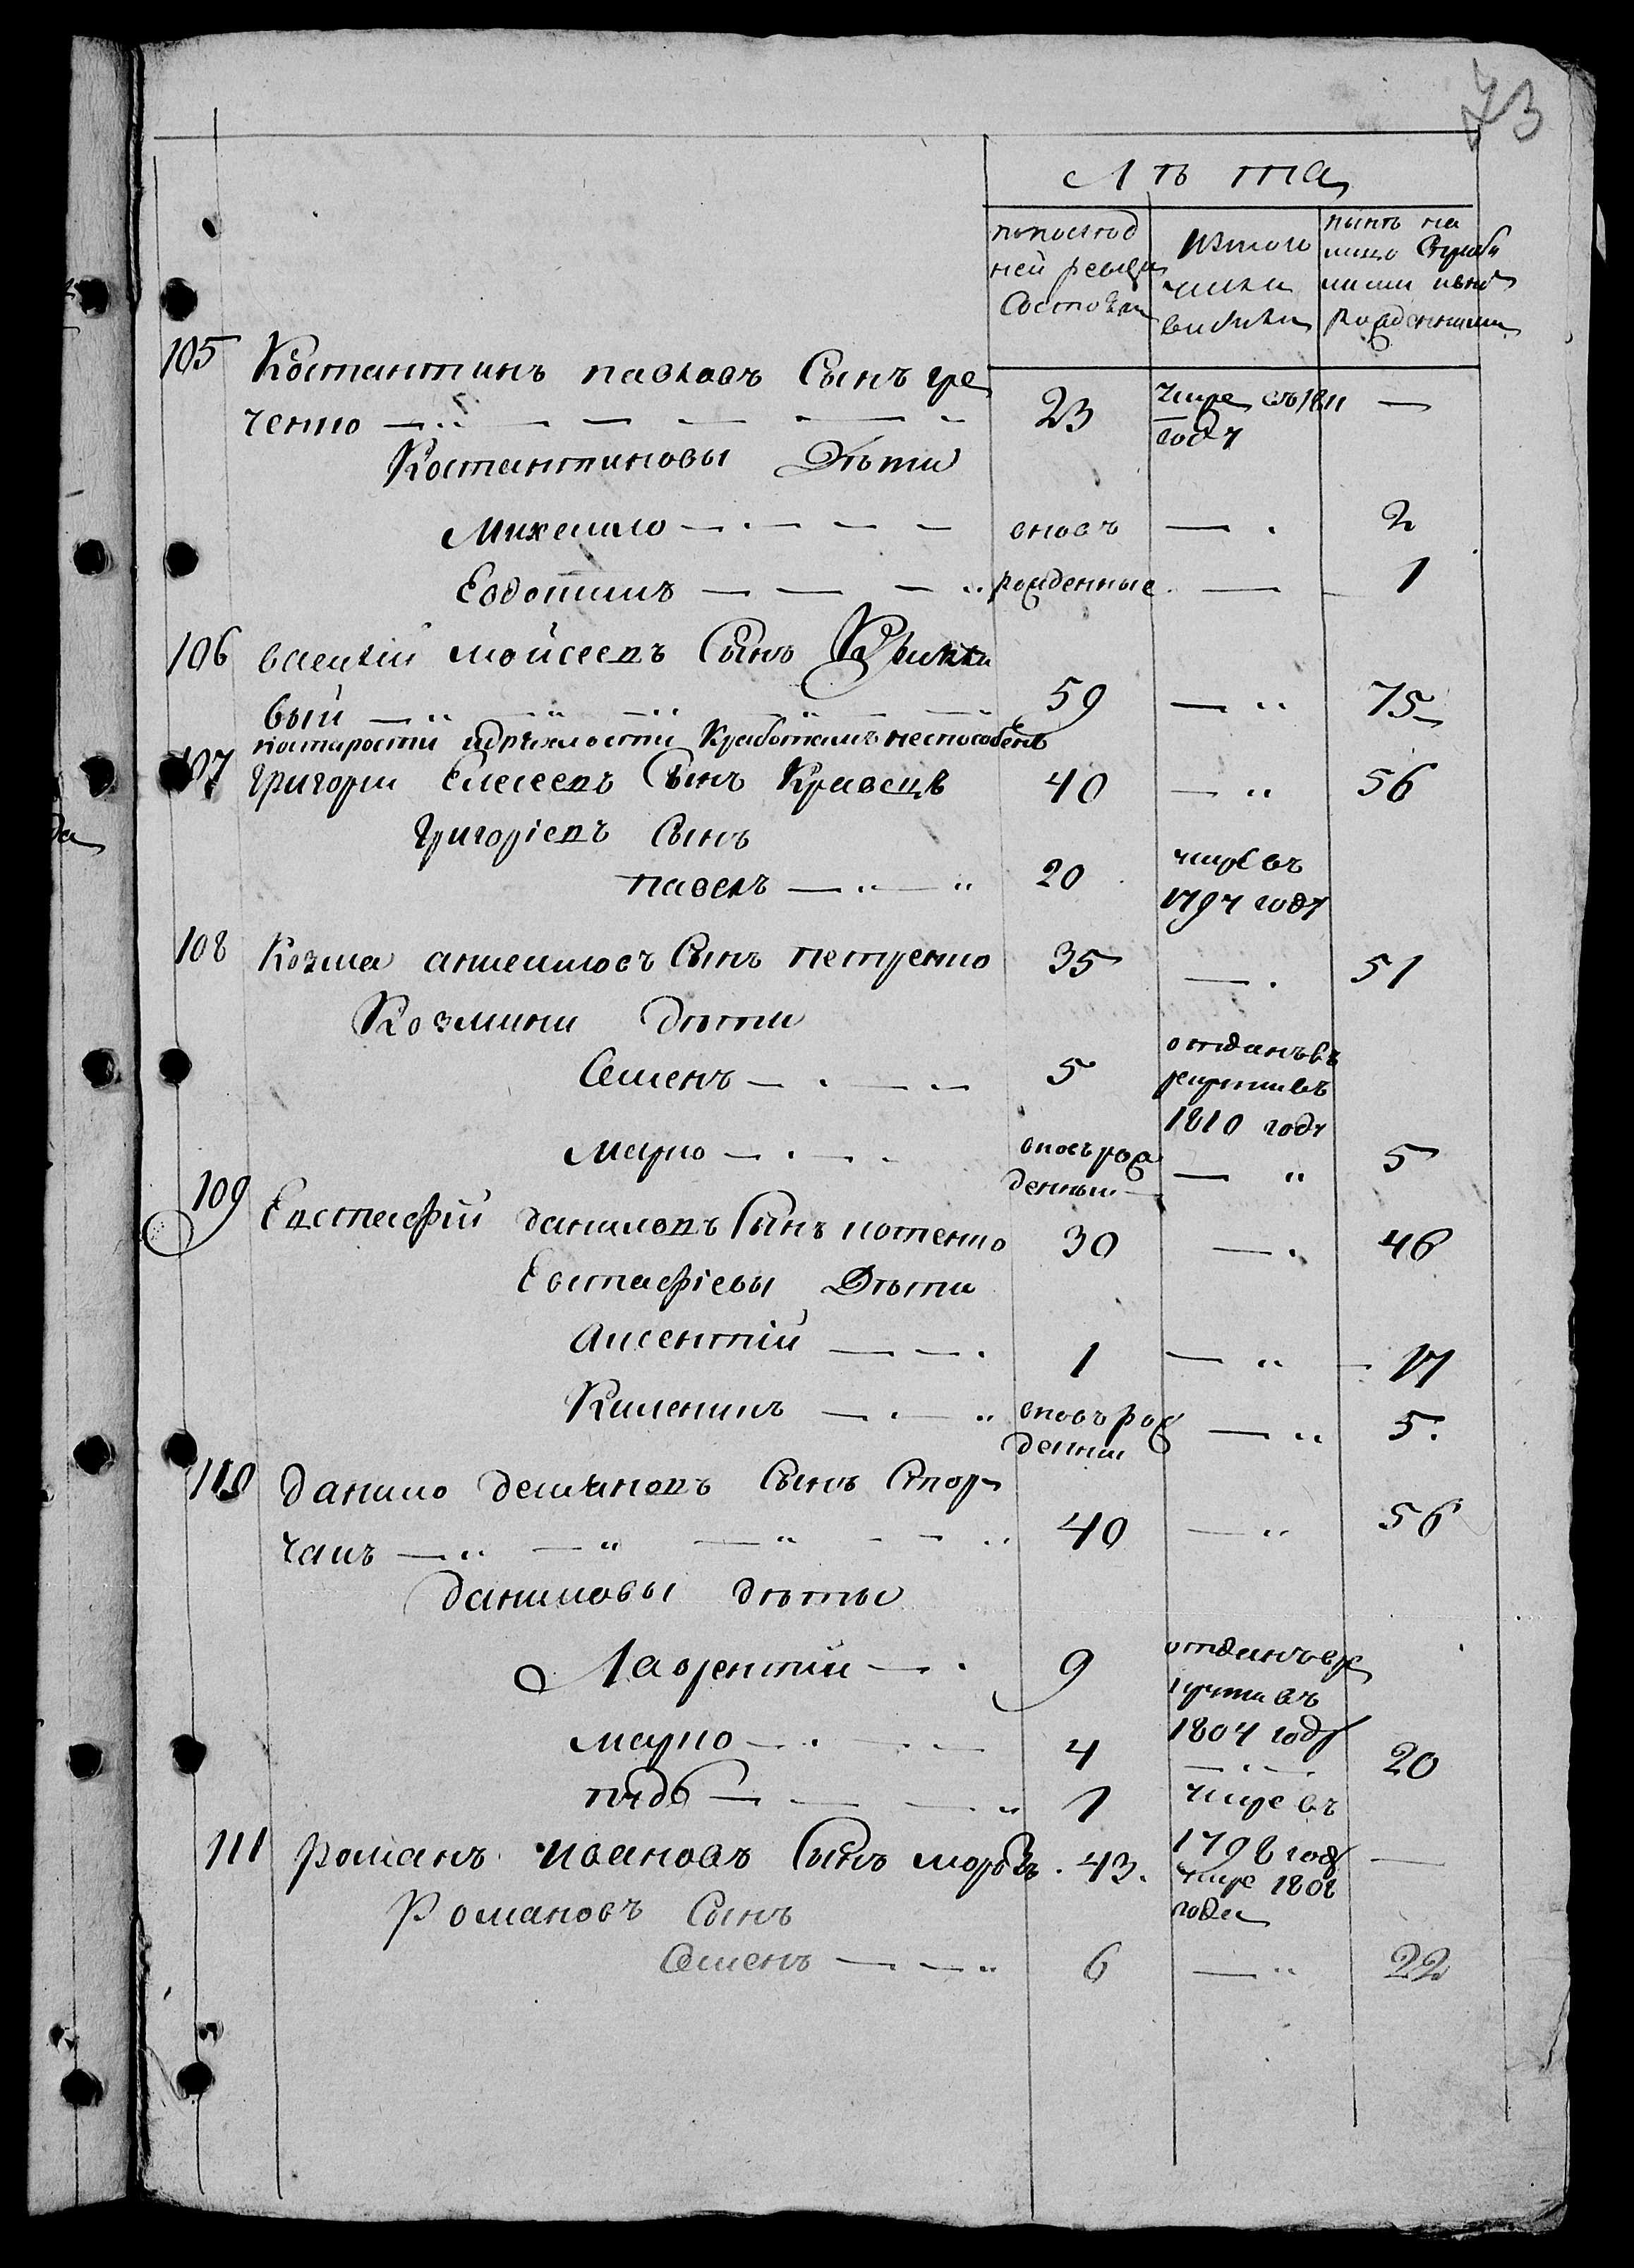 73
Лѣта
попослѣд
ней ревизи
Состояли
изтого
числа
выбыли
нынѣ на
лицо
рожденными
105 Костантинъ павловъ Сынъ гре
ченко
23
умре въ 1811
году
Костантиновы Дѣти
Михаило
вновъ
2
Евдокимъ
рожденные
1
106 василий мойсеевъ Сынъ
вый
59
75
постарости идряхлости Кработамъ неспособенъ
107 григорий Елесеевъ Сынъ Кравецъ
40
56
григоріевъ Сынъ
павелъ
20
умре въ
1797 году
108 Козма Сынъ петренко
35
51
Козмини дѣти
Семенъ
5
отданъ въ
рекрути въ
1810 году
марко
вновъ рож
денный
5
109 Евстафій даниловъ Сынъ котенко
30
46
Евстафіевы Дѣти
Аксентій
1
17
Килеминъ
вновъ рож
денни
5
110 данило демяновъ Сынъ Стор
чакъ
40
56
даниловы дѣты
Лаврентий
9
отданъ в ре
крути въ
1804 году
марко
4
20
1
умре въ
1798 году
111 романъ ивановъ Сынъ морозъ
43
умре 1808
года
Романовъ Сынъ
Семенъ
6
22